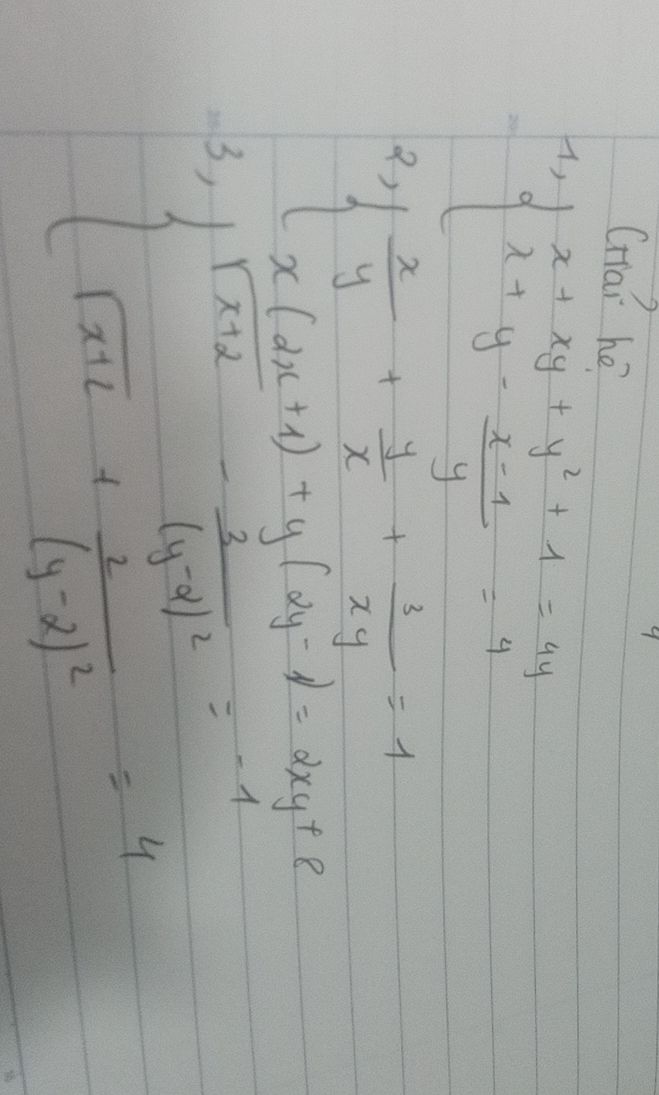 Giải hệ
1, { x + xy + y² + 1 = 4y
x + y - (x - 1)/y = 4
2, { x/y + y/x + 3/(xy) = 1
x(2x+1) + y(2y-1) = 2xy + 8
3, { √(x+2) - 3/(y-2)² = -1
√(x+2) + 2/(y-2)² = 4